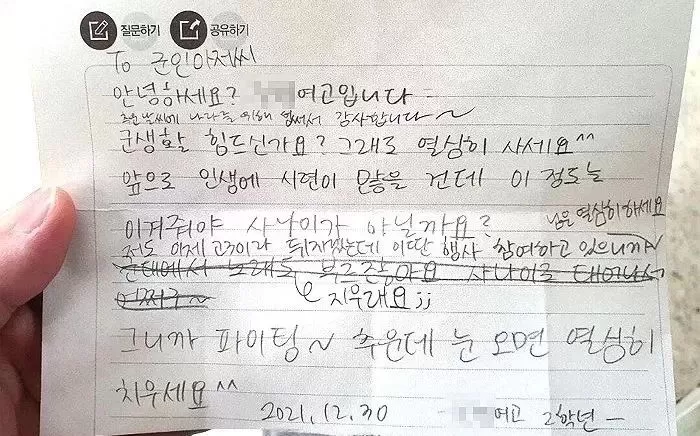 질문하기 공유하기
To 군인아저씨
안녕하세요? 여고입니다
추운날씨에 나라를 위해 힘써서 감사합니다~
군생활 힘드신가요? 그래도 열심히 사세요^^
앞으로 인생에 시련이 많을 건데 이 정도는
이겨줘야 사나이가 아닐까요?
님은 열심히 하세요
저도 이제 고3이라 뒤지겠는데 이딴 행사 참여하고 있으니까~
군대에서 노래도 부르잖아요 사나이로 태어나서
어쩌구~
지우래요;;
그니까 파이팅~ 추운데 눈 오면 열심히
치우세요^^
2021.12.30 여고 2학년-